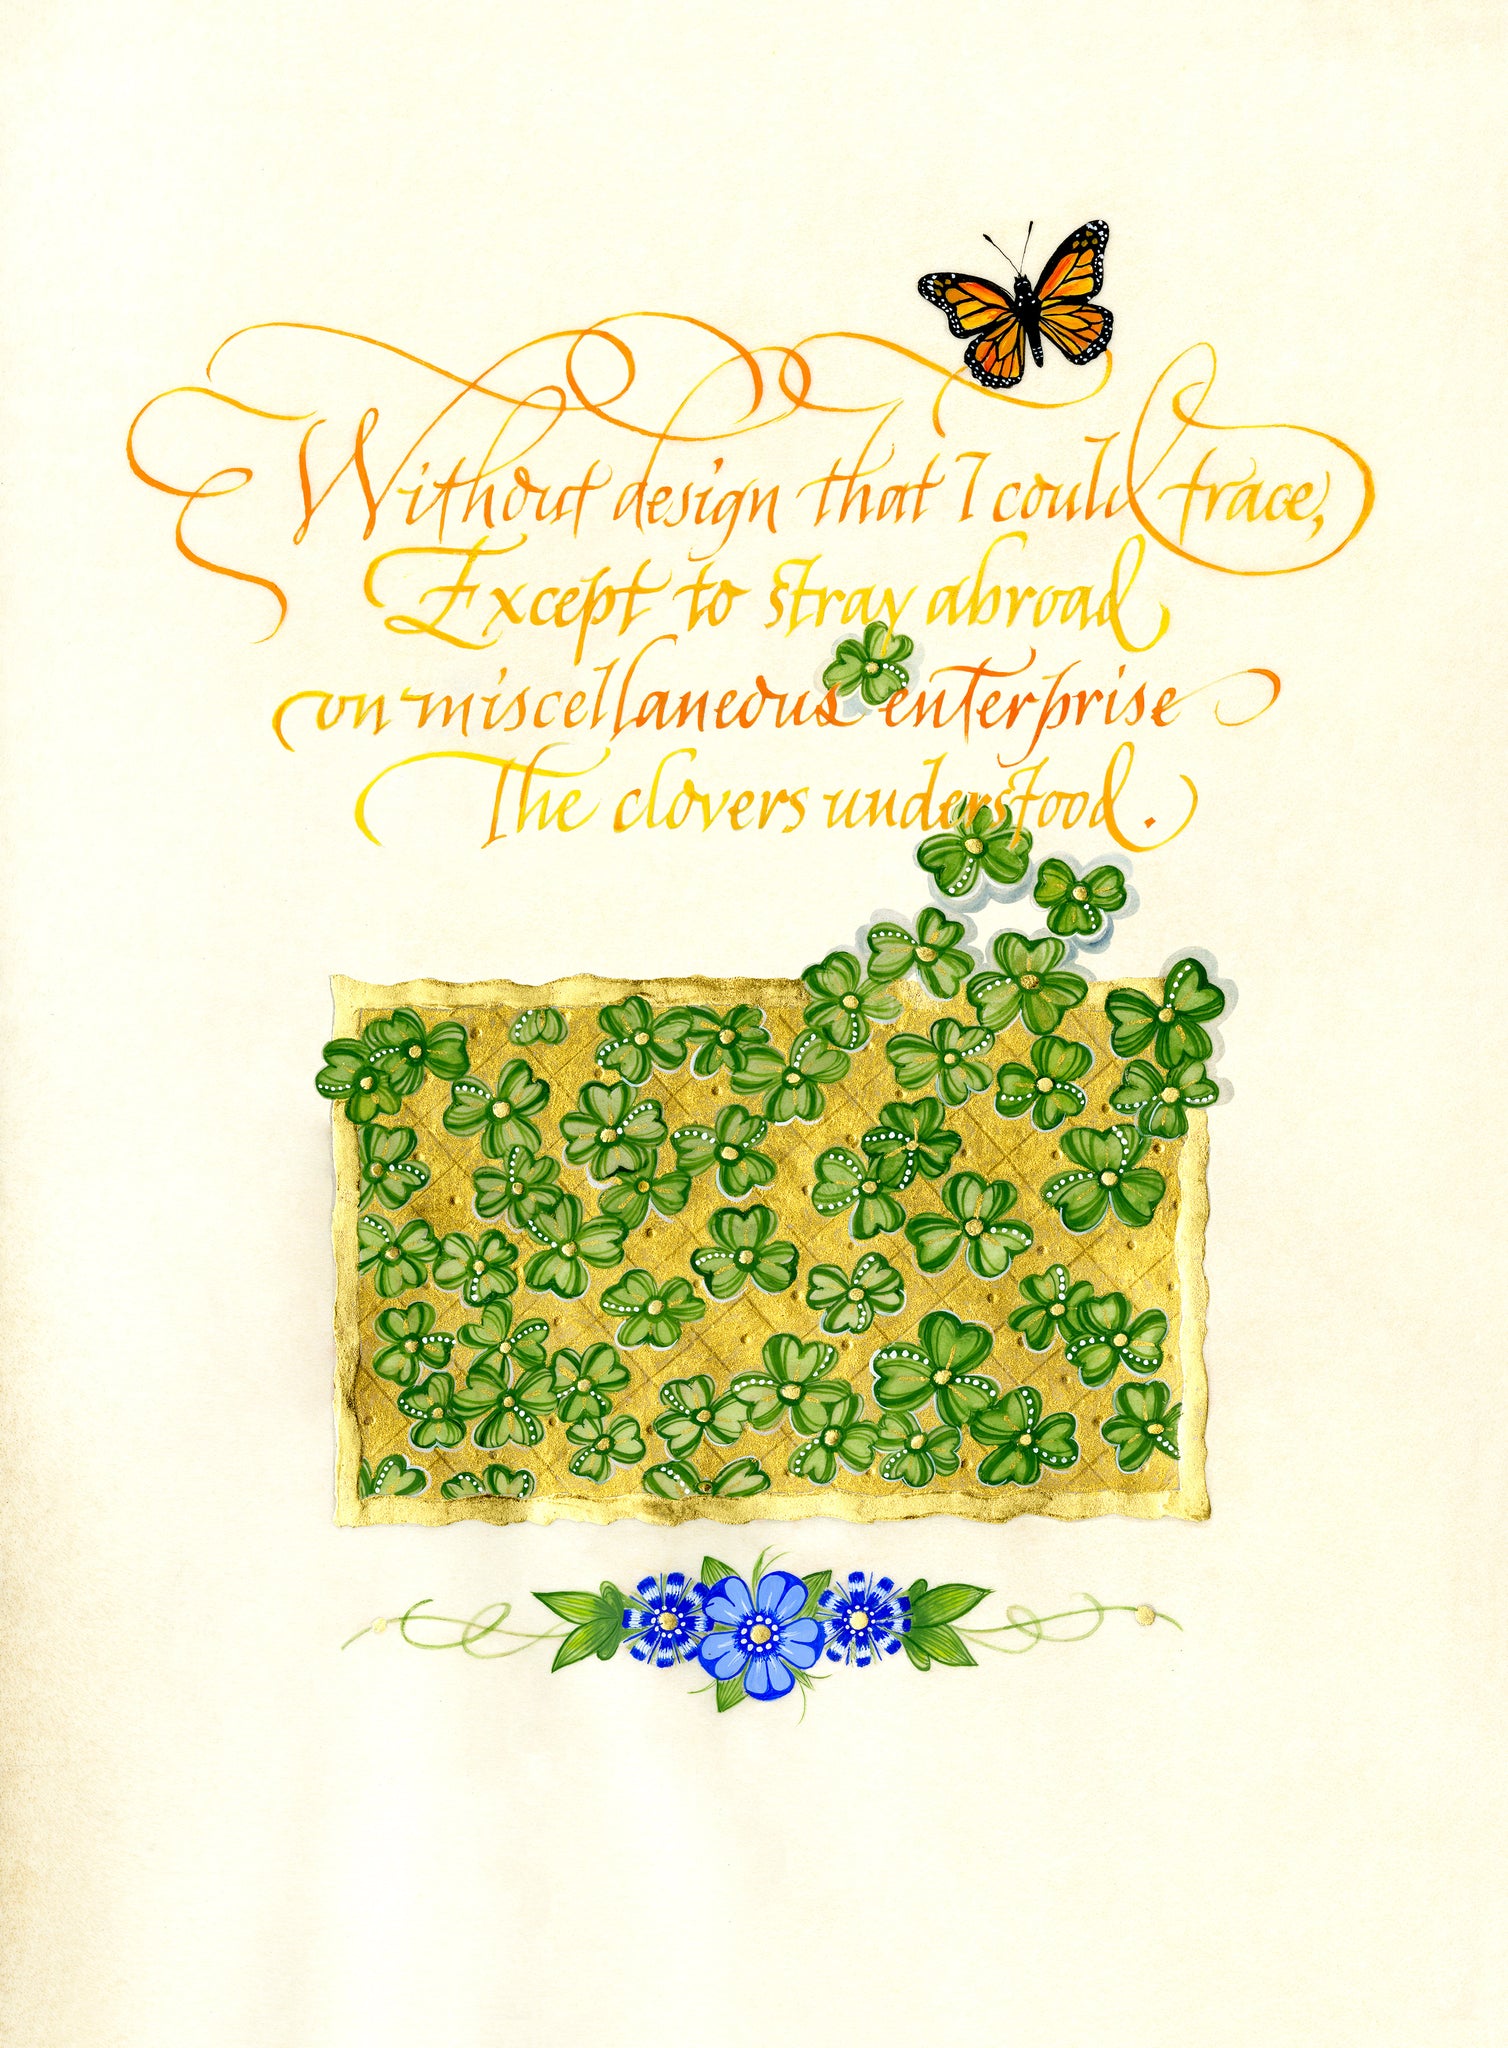 Without design that I could trace,
Except to stray abroad
on miscellaneous enterprise
The clovers understood.